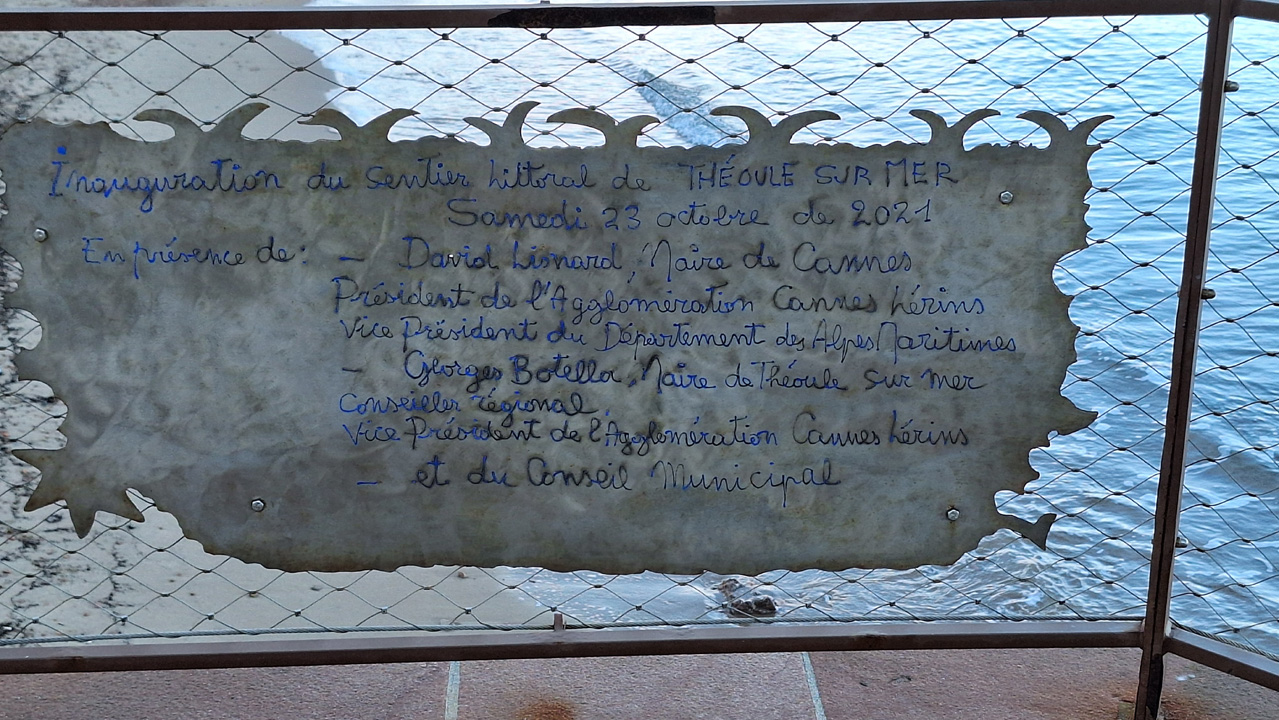 Inauguration du sentier littoral de THÉOULE SUR MER
Samedi 23 octobre de 2021
En présence de : — David Lisnard, Maire de Cannes
Président de l'Agglomération Cannes Lérins
Vice Président du Département des Alpes Maritimes
— Georges Botella, Maire de Théoule sur mer
Conseiller régional,
Vice Président de l'Agglomération Cannes Lérins
— et du Conseil Municipal